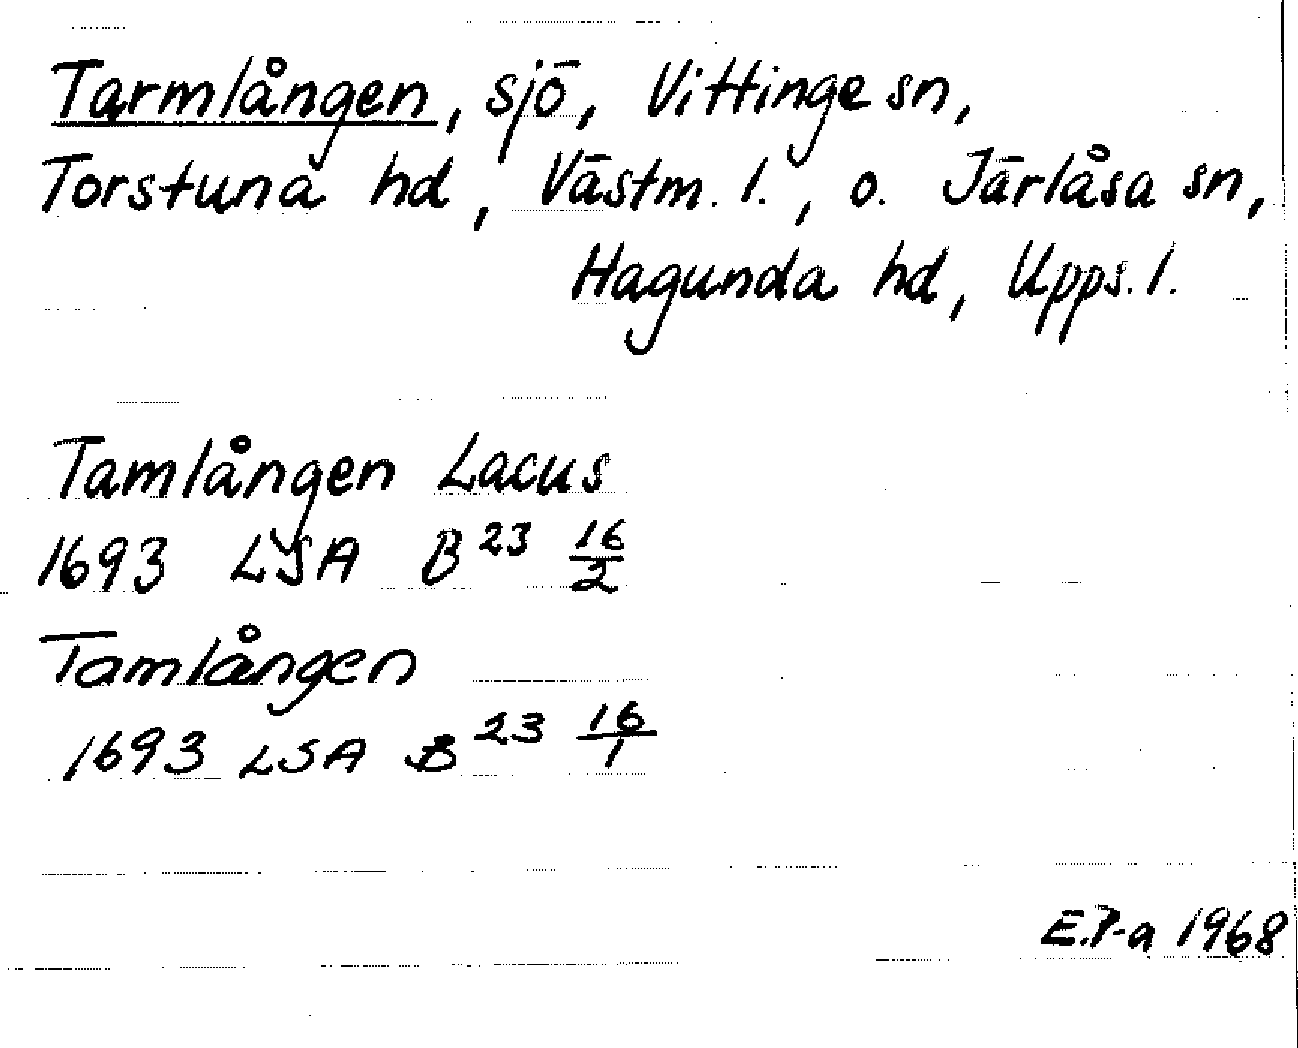 Tarmlången, sjö, Vittinge sn,
Torstuna hd, Västm. l., o. Järlåsa sn,
Hagunda hd, Upps. l.
Tamlången Lacus
1693 LSA B 23 16/2
Tamlången
1693 LSA B 23 16/1
E.P-a 1968